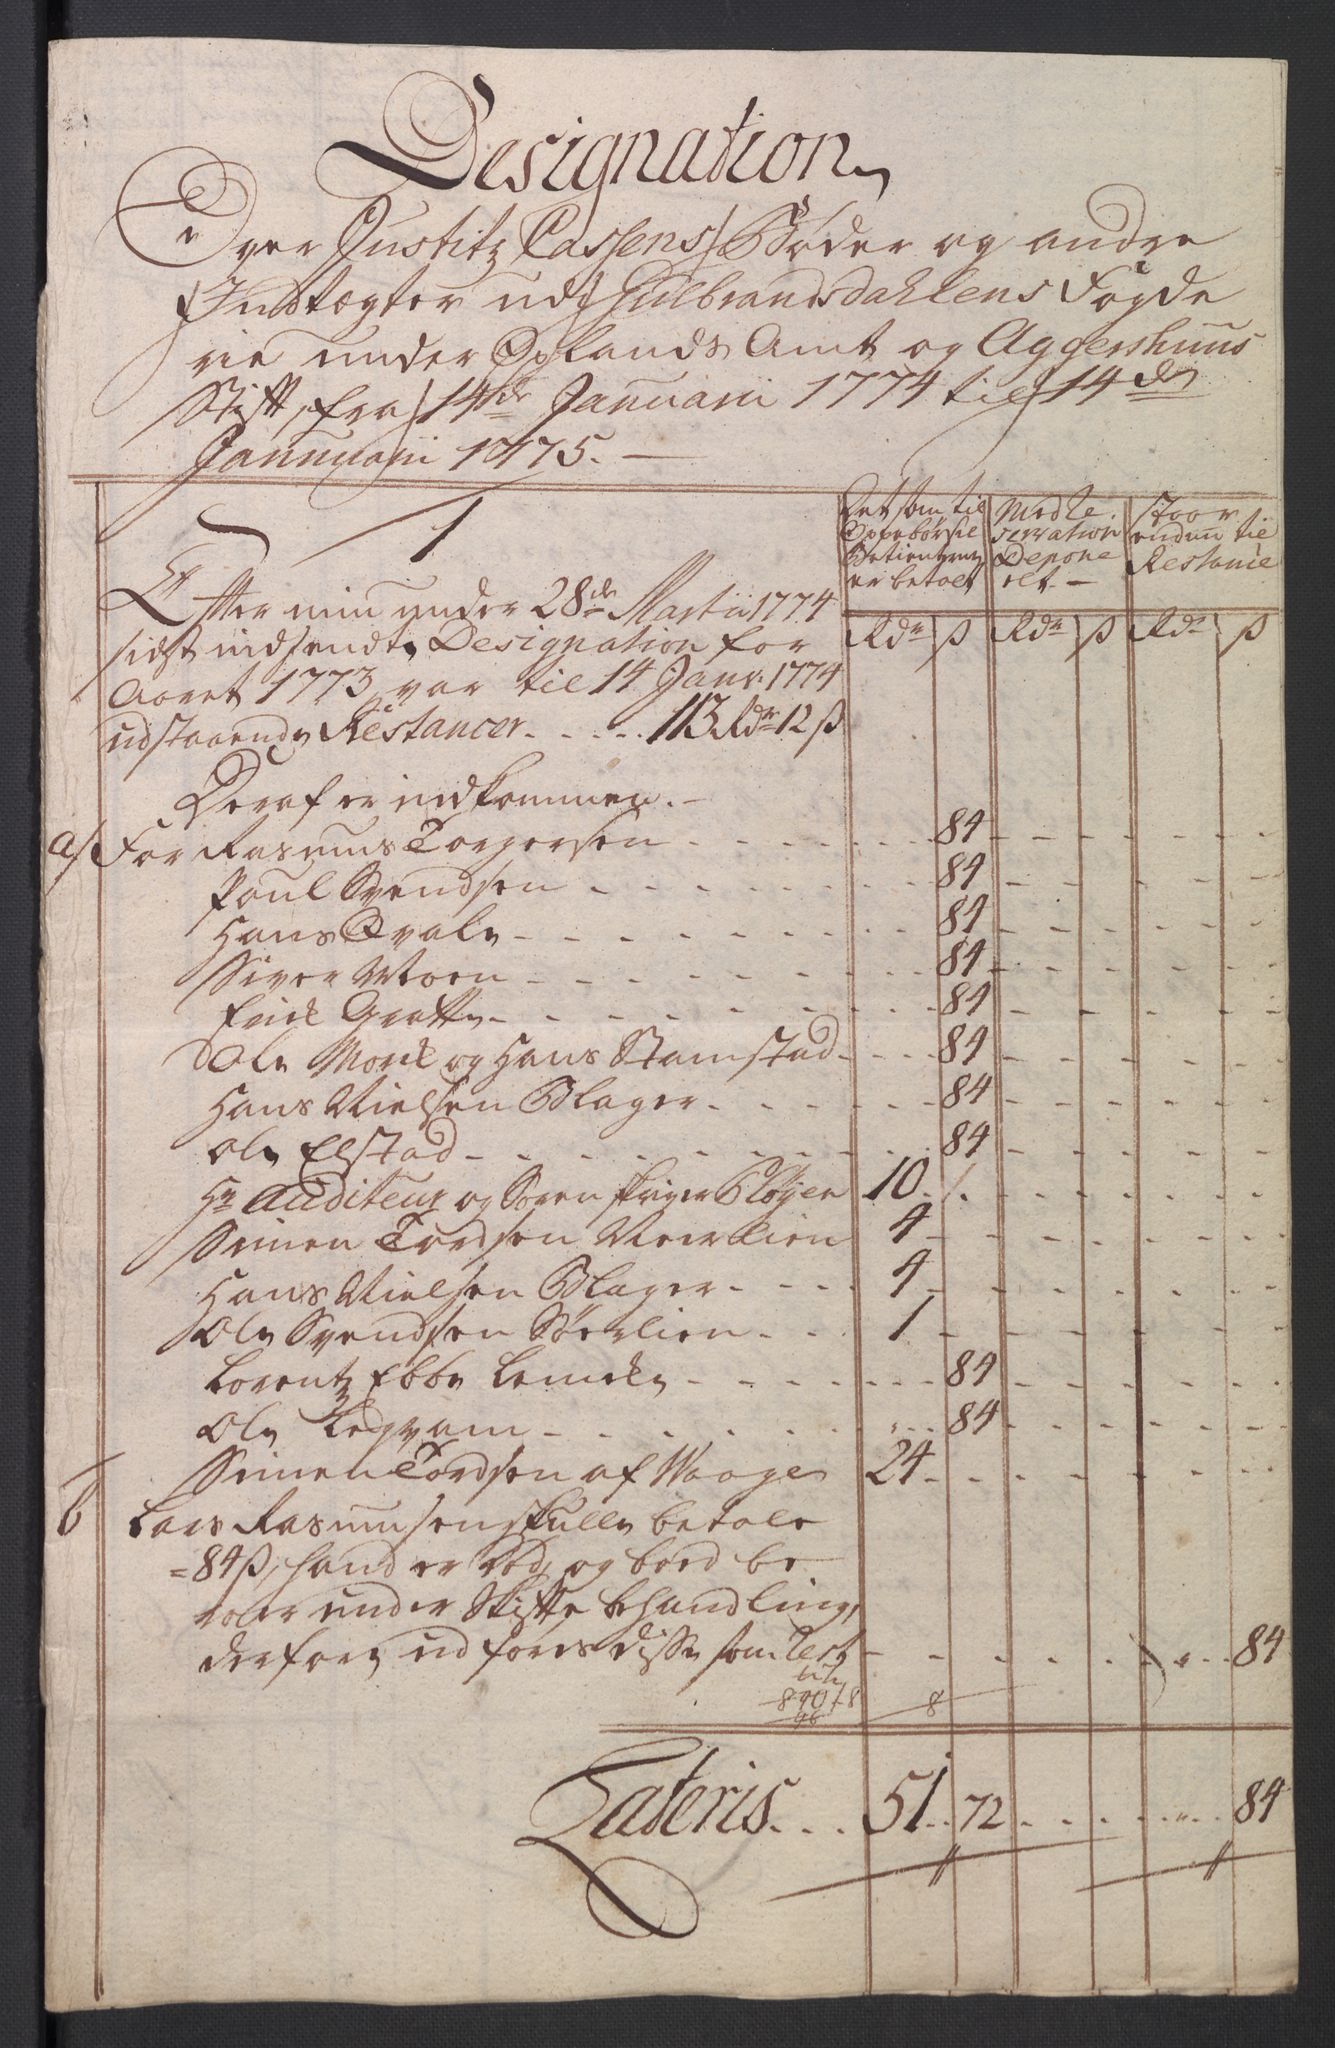 Designation
Over Justitz Cassens Bøder og andre
Indtægter udj Gulbrandsdahlens Fogde
rie under Oplands Amt og Aggershuus
Stift, fra 14de Januarii 1774 til 14de
Januarii 1775.
1
Det som til Oppebørsel Betienteren er betalt
Med Reservation Deponeret
Staar endnu til Restance
Rdr ß Rdr ß Rdr ß
Efter min under 28de Martii 1774
sidst indsendte Designation for
Aaret 1773 var til 14 Janr: 1774
udstaaende Restancer..... 113 Rdr 12 ß
Deraf er indkommen.
a/ For Rasmus Torgersen 84
Poul Svendsen 84
Hans Qvale 84
Siver Moen 84
Erick Graffe 84
Ole Morck og Hans Stamstad 84
Hans Nielsen Blager 84
Ole Elstad 84
Hr Auditeur og Sorenskriver Bløyer 10
Simen Tordsen Neerlien 4
Hans Nielsen Blager 4
Ole Svendsen Sørlien 1
Lorentz Ebbe Lemcke 84
Ole Legvam 84
Simen Tordsen af Vaage 24
b Lars Rasmusen skulle betale
=84 ß, hand er død, og boed be
roer under Skifte behandling,
derfore udføres disse som Rest 84
840 / 8
96
8
Lateris... 51.. 72 84